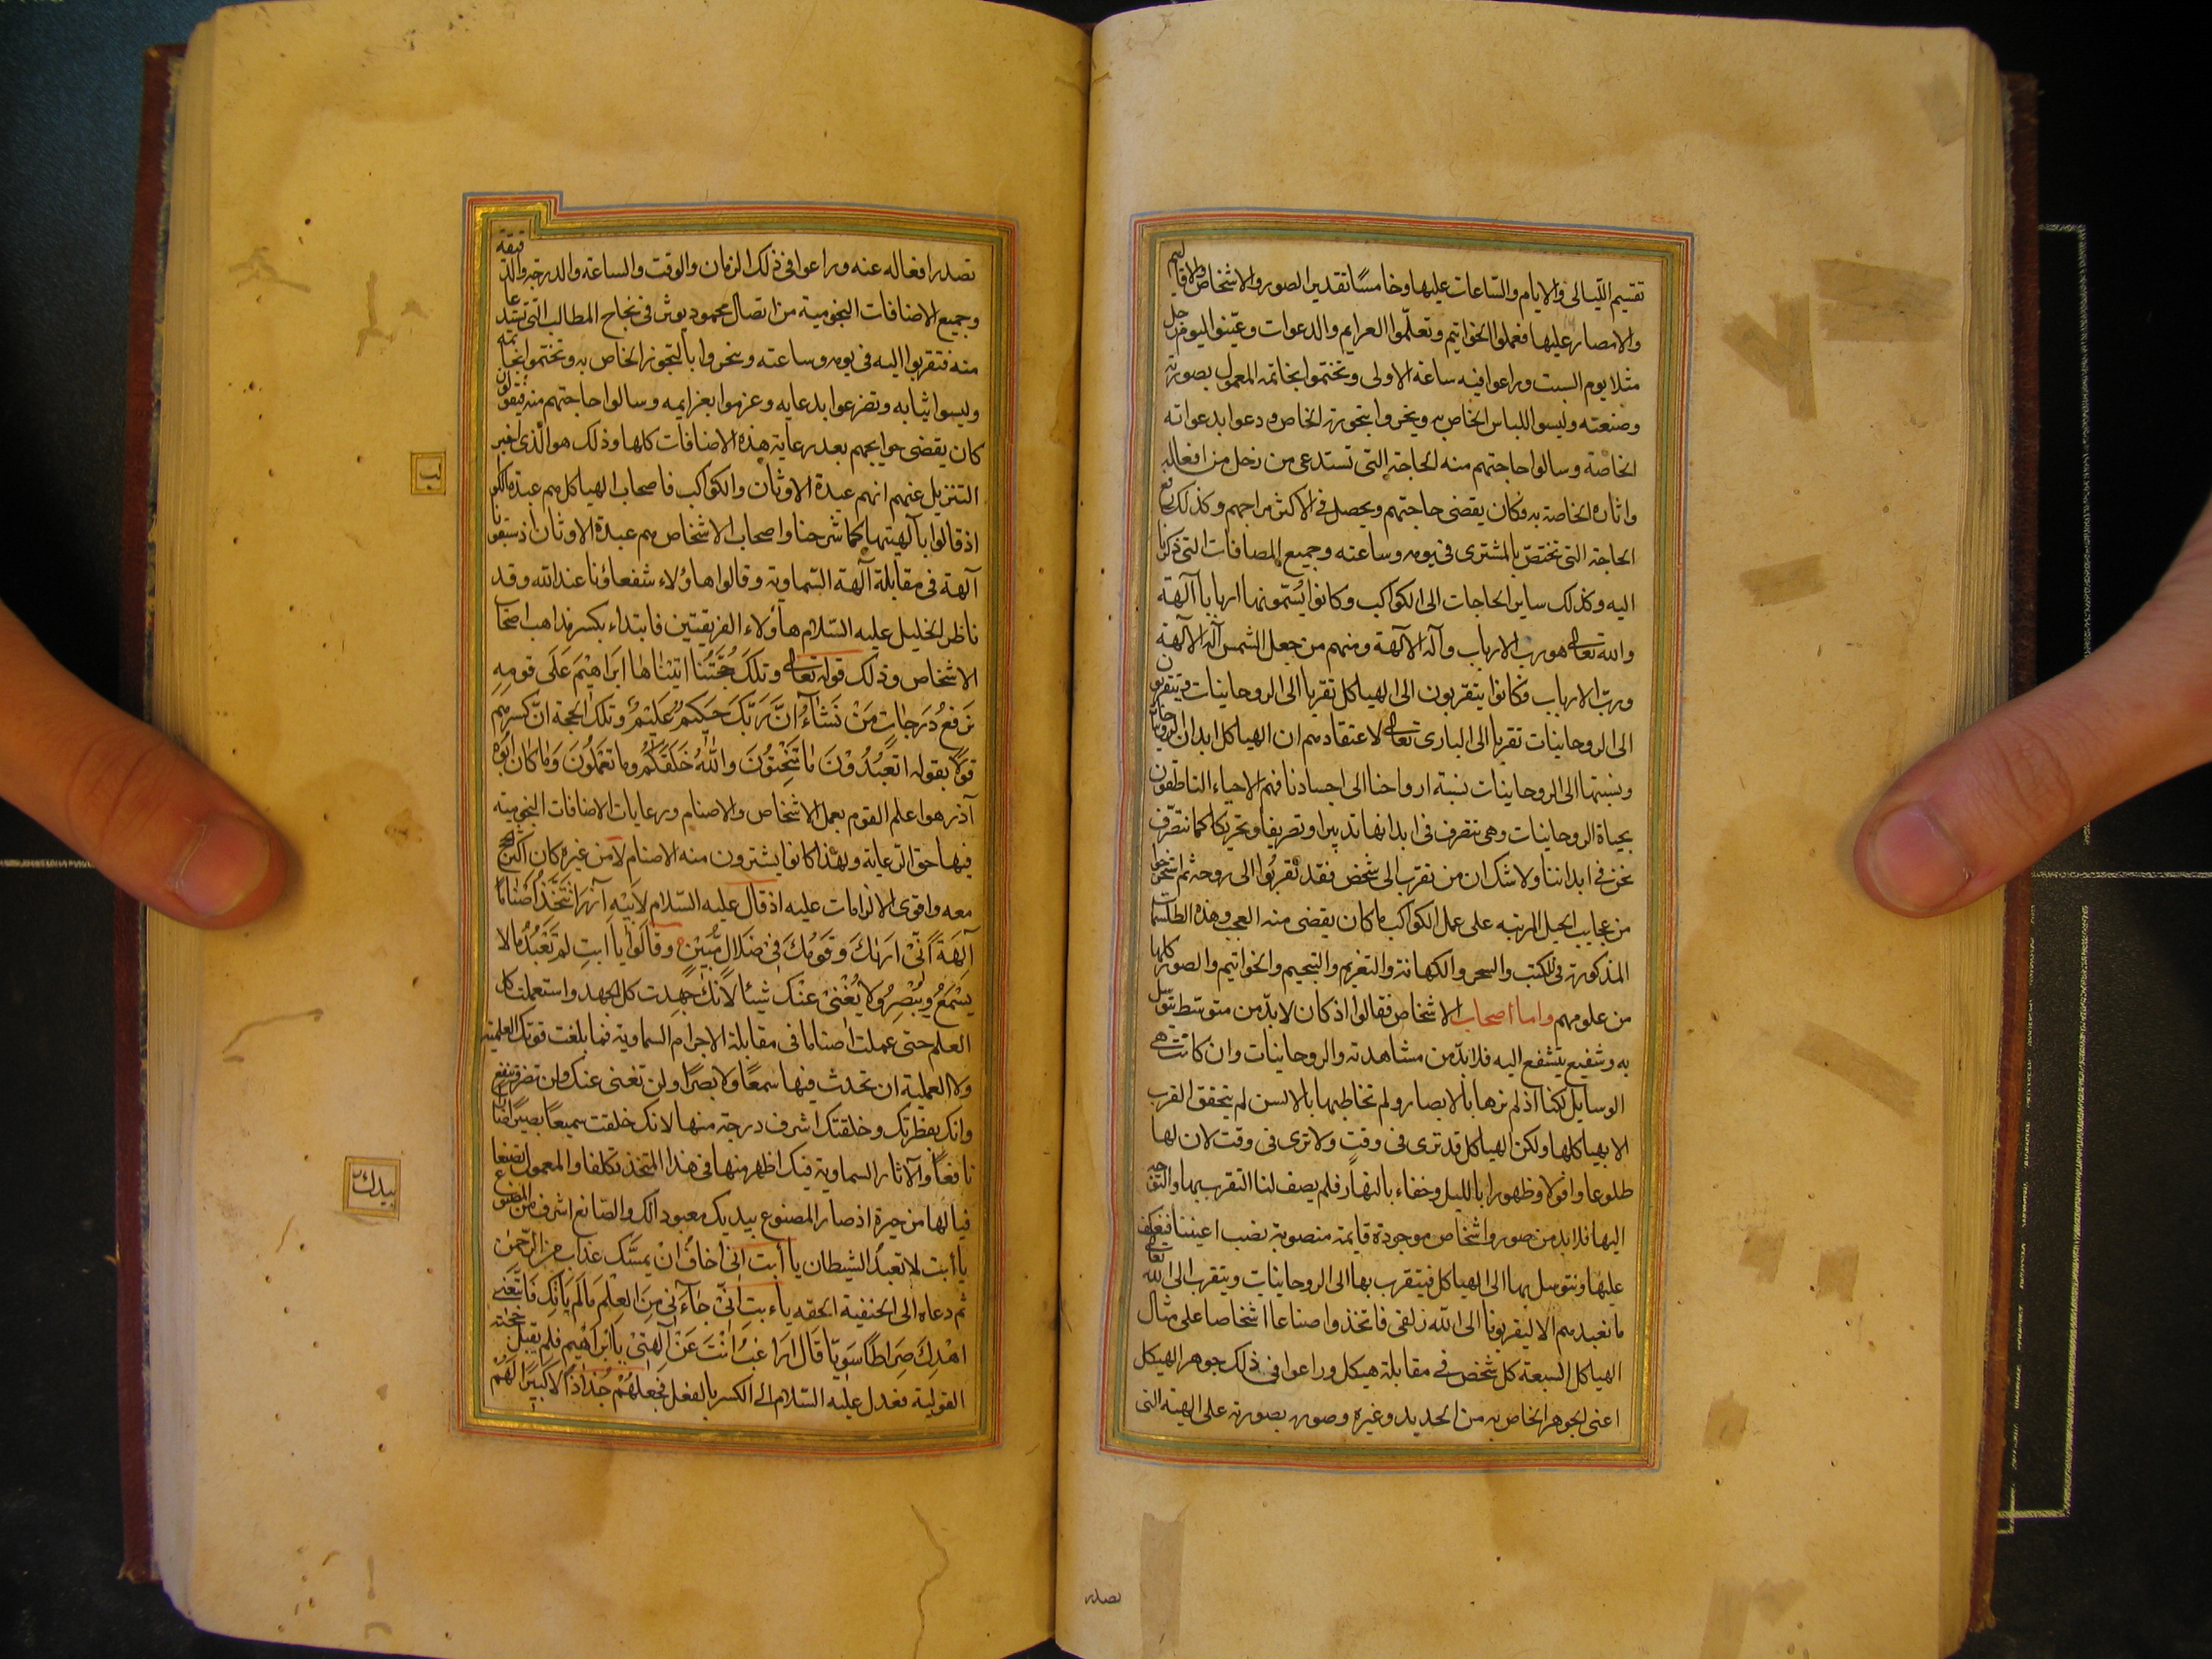 تقسيم الليالى والايام والساعات عليها وخامسًا تقدير الصور والاشخاص والاقاليم
والامصار عليها فعملوا الخواتيم وتعلّموا العزايم والدعوات وعيّنوا اليوم زحل
مثلا يوم السبت وراعوا فيه ساعته الاولى وتختموا بخاتمه المعمول بصورته
وصنعته ولبسوا اللباس الخاص به وبخروا ببخوره الخاص ودعوا بدعواته
الخاصّة وسالوا حاجتهم منه الحاجة التى تستدعى من زحل من افعاله
واثاره الخاصة به فكان يقضى حاجتهم ويحصل فى الاكثر مرامهم وكذلك رفع
الحاجة التى تختصّ بالمشترى فى يومه وساعته وجميع المضافات التى ذكرنا
اليه وكذلك ساير الحاجات الى الكواكب وكانوا يُسَمّونها اربابا آلهة
والله تعالى هو رب الارباب وآله الالهة ومنهم من جعل الشمس آله الآلهة
وربّ الارباب فكانوا يتقربون الى الهياكل تقربا الى الروحانيات ويتقربون
الى الروحانيات تقربا الى البارى تعالى لاعتقادهم ان الهياكل ابدان الروحانيات
ونسبتها الى الروحانيات نسبة ارواحنا الى اجسادنا فهم الاحياء الناطقون
بحياة الروحانيات وهى تتصرف فى ابدانها تدبيرا وتصريفا وتحريكا كما نتصرّف
نحن فى ابداننا ولاشك ان من تقرب الى شخص فقد تقربوا الى روحه ثم استخرجوا
من عجايب الحيل المرتبه على عمل الكواكب ما كان يقضى منه العجب وهذه الطلسمات
المذكورة فى الكتب والسحر والكهانة والتعزيم والتنجيم والخواتيم والصور كلها
من علومهم واما اصحاب الاشخاص فقالوا اذ كان لابدّ من متوسط يتوسل
به وشفيع يتشفع اليه فلا بدّ من مشاهدته والروحانيات وان كانت هى
الوسايل لكنا اذ لم نرها بالابصار ولم نخاطبها بالالسن لم يتحقق القرب
الا بهياكلها ولكن الهياكل قد ترى فى وقت ولا ترى فى وقت لان لها
طلوعا وافولا وظهورا بالليل وخفاء بالنهار فلم يصف لنا التقرب بها والتوجه
اليها فلا بد من صور واشخاص موجودة قايمة منصوبة نصب اعيننا فنعكف
عليها ونتوسل بها الى الهياكل فيتقرب بها الى الروحانيات ويتقرب الى الله تعالى
ما نعبدهم الا ليقربونا الى الله زلفى فاتخذوا اصناما اشخاصا على مثال
الهياكل السبعة كل شخص فى مقابلة هيكل وراعوا فى ذلك جوهر الهيكل
اعنى الجوهر الخاص به من الحديد وغيره وصوره بصورته على الهية التى
تصدر
تصدر افعاله عنه وراعوا فى ذلك الزمان والوقت والساعة والدرجة والدقيقة
وجميع الاضافات النجومية من اتصال محمود يوثر فى نجاح المطالب التى تستدعى
منه فتقربوا اليه فى يومه وساعته وبخروا بالبخور الخاص به وتختموا بخاتمه
ولبسوا ثيابه وتضرعوا بدعايه وعزموا بعزايمه وسالوا حاجتهم منه فيقولون
كان يقضى حوايجهم بعد رعاية هذه الاضافات كلها وذلك هو الّذى اخبر
لب
التنزيل عنهم انهم عبدة الاوثان والكواكب فاصحاب الهياكل هم عبدة الكواكب
اذ قالوا بآلهيتها كما شرحنا واصحاب الاشخاص هم عبدة الاوثان اذ سمّوها
آلهة فى مقابلة آلهة السّماوية وقالوا هاؤلاء شفعاؤنا عند الله وقد
ناظر الخليل عليه السّلام هاؤلاء الفريقتين فابتداء بكسر مذاهب اصحاب
الاشخاص وذلك قوله تعالى وتلك حُجَّتُنا اتيْناها ابْرَاهيْمَ عَلَى قومِهِ
نَرفعُ دَرَجاتٍ مَنْ نَشاءُ اِنَّ رَبَّكَ حَكيمٌ عَليمٌ وتلك الحجة ان كسرهم
قولا بقوله اتعبُدُوْنَ مَا تَنْحِتُوْنَ واللهُ خَلَقَكُم وما تعْمَلُونَ وَلما كان ابوه
آذر هو اعلم القوم بعمل الاشخاص والاصنام ورعايات الاضافات النجومية
فيها حق الرعاية ولهذا كانوا يشترون منه الاصنام لا من غيره كان اكثر الحجج
معه واقوى الالزامات عليه اذ قال عليه السّلام لاَبيْهِ آزَرَ اتتّخذُ اَصْناماً
آلهَةً اِنّى اَرَىٰكَ وَقَومَكَ فِىْ ضَلَالٍ مُّبِيْنٍ وقالوا يا اَبتِ لم تَعْبُدُ ما لا
يَسْمَعُ ولا يُبْصِرُ وَلا يُغْنىْ عنْكَ شيئا لانّك جهدت كل الجهد واستعملت كل
العلم حتى عملت اصناما فى مقابلة الاجرام السماوية فما بلغت قوتك العلمية
ولا العملية ان تحدث فيها سمعًا ولا بصرًا ولن تغنى عنك ولن تضر وتنفع
وانك بفطرتك وخلقتك اشرف درجة منها لانك خلقت سميعا بصيرا ضارا
نافعاً والآثار السماوية فيك اظهر منها فى هذا المتخذ تكلفا والمعمول تصنعا
بيدك
فيا لها من حيرة اذ صار المصنوع بيديك معبودا لك والصّانع اشرف من المصنوع
يا أبت لا تعبدُ الشيطان يا أبت اِنى اخافُ انْ يمسَّك عذاب من الرّحمٰن
ثم دعاه الى الحنفية الحقه يا ءبتِ اِنّىْ جاءَنى مِنَ العِلمِ مَا لَم يَأتِكَ فَاتَّبعنى
اَهْدِكَ صِرَاطاً سَويّا قَالَ اَرَاغِبٌ اَنْتَ عَنْ آلِهَتِىْ يا ابْرَاهِيم فلم يقبل حجته
القولية فعدل عليه السّلام الى الكسر بالفعل فجعلهُمْ جُذَاذاً اِلا كَبِيْرًا لَهُمْ